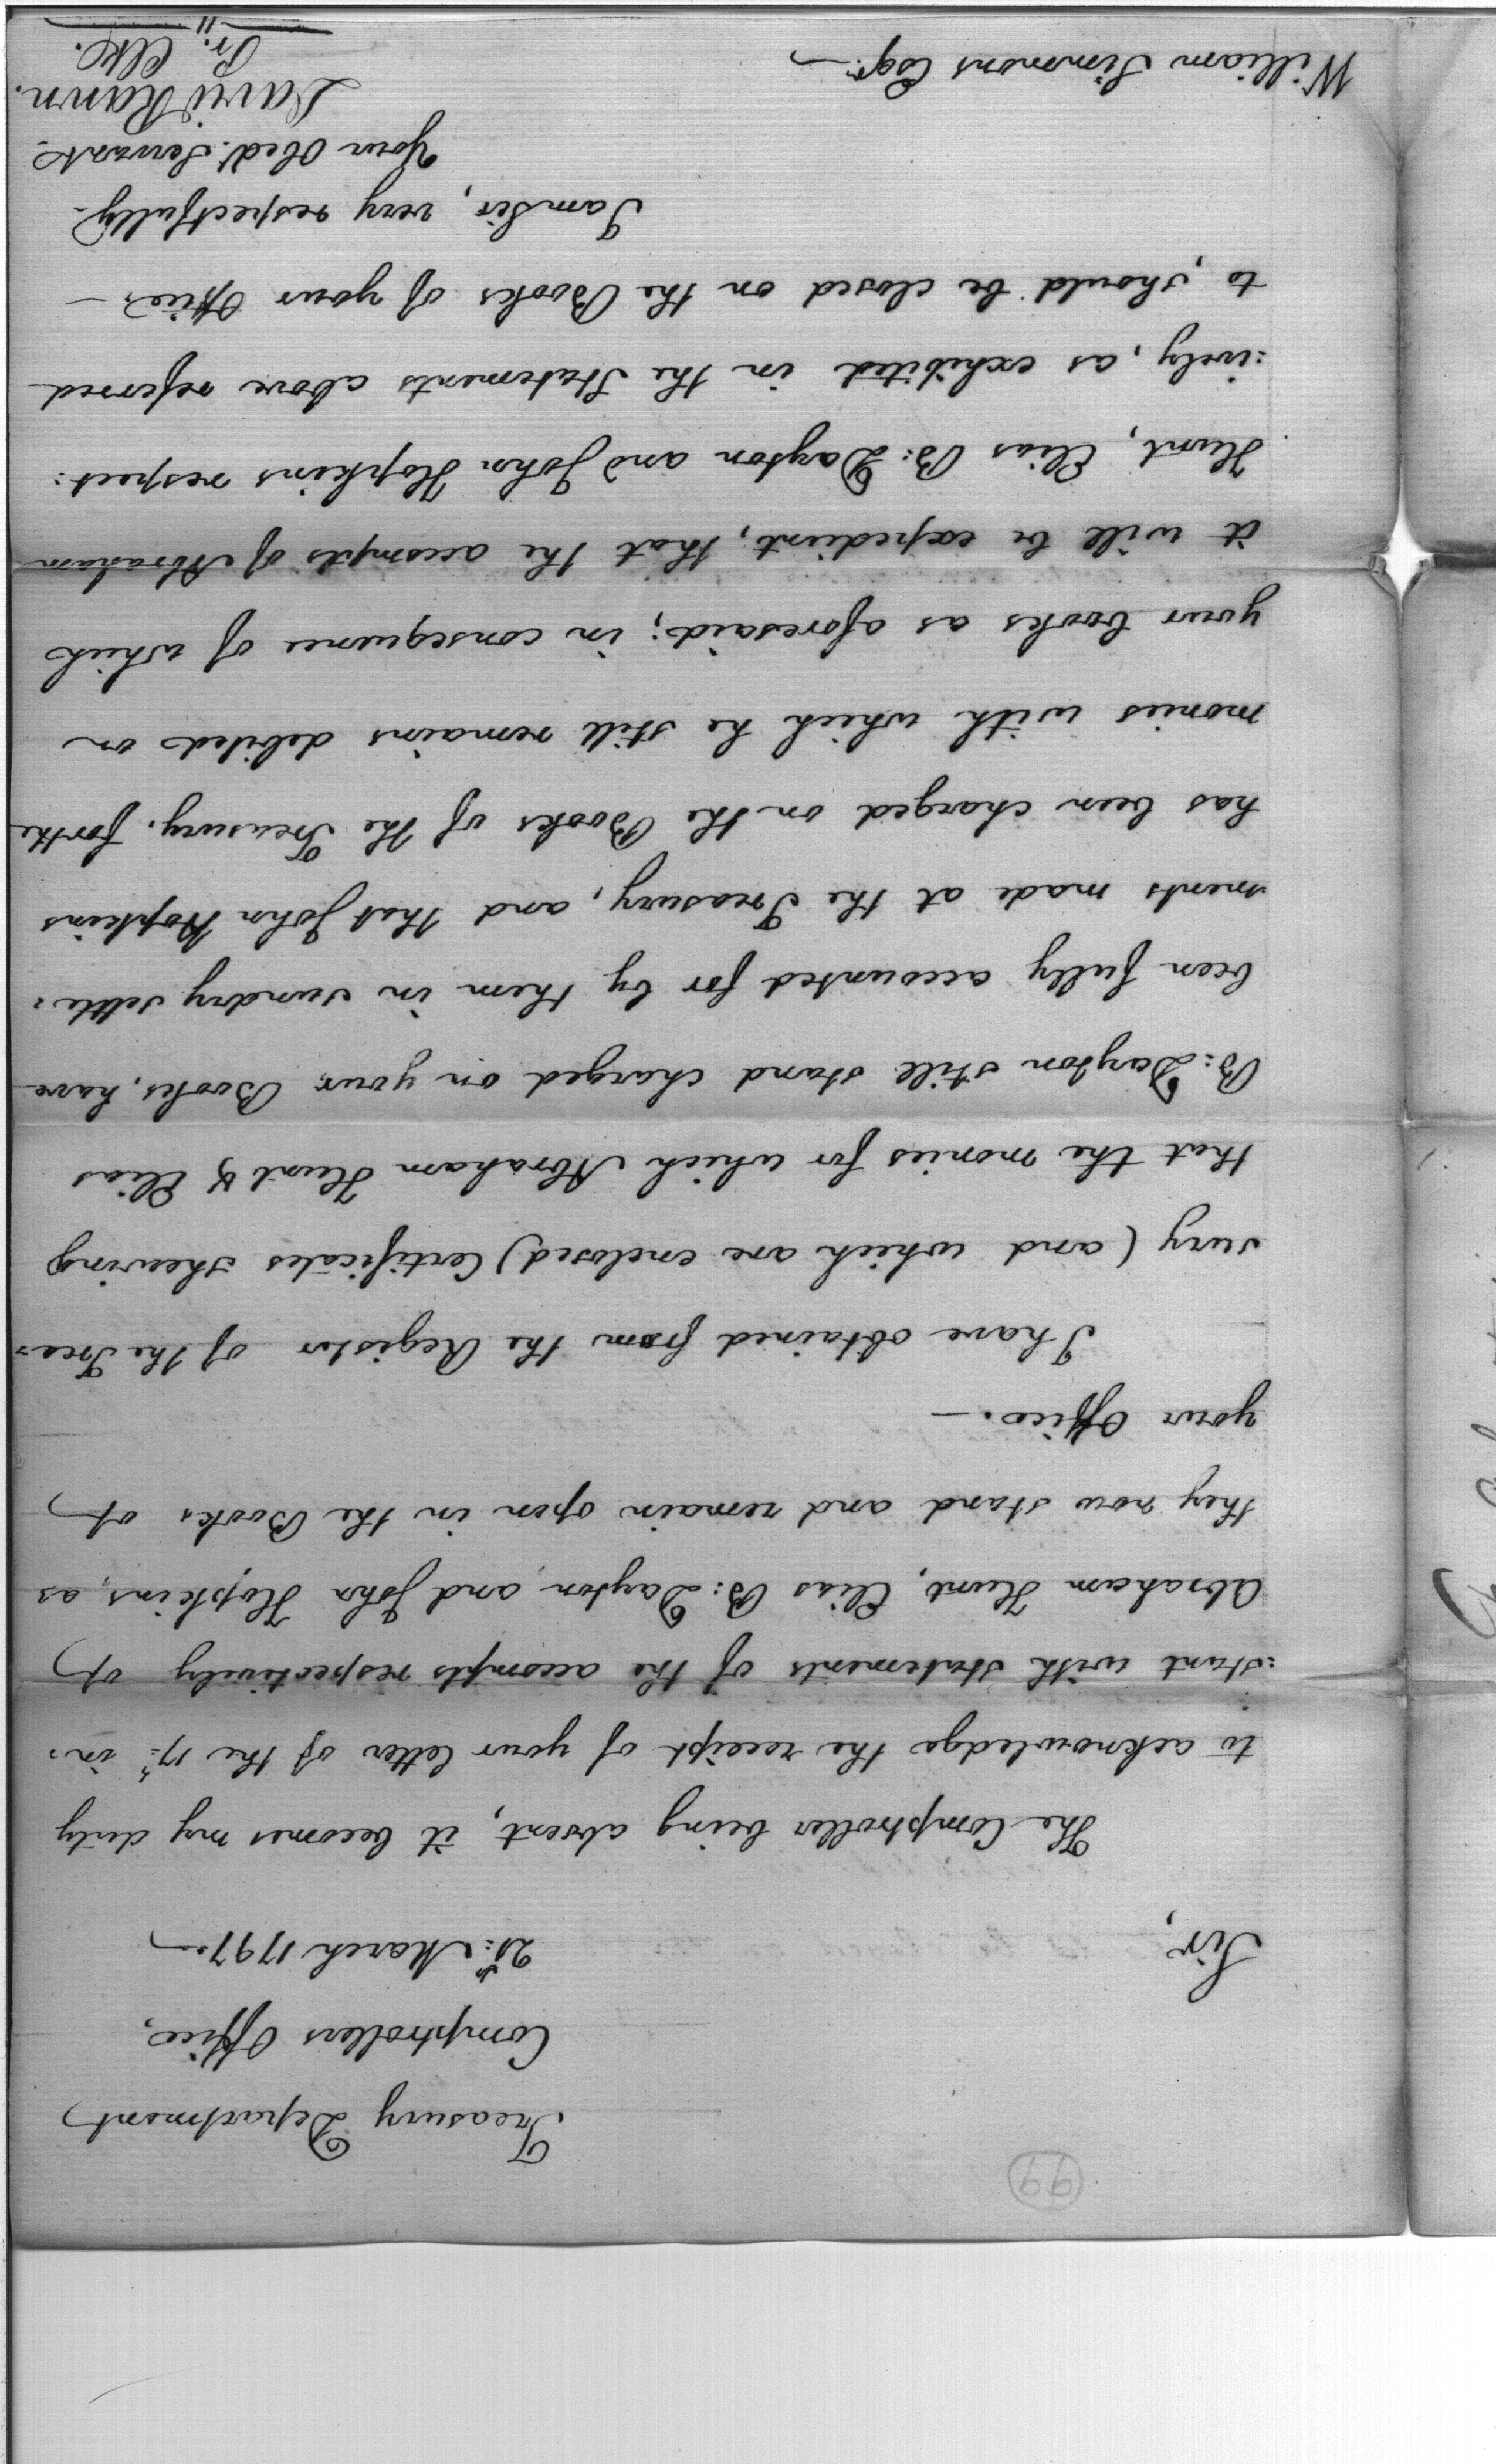 99
Treasury Department
Comptrollers Office,
21st: March 1797.—
Sir,
The Comptroller being absent, it becomes my duty
to acknowledge the receipt of your letter of the 17th: in:
:stant with statements of the accompts respectively of
Abraham Hunt, Elias B: Dayton and John Hopkins, as
they now stand and remain open in the Books of
your Office.—
I have obtained from the Register of the Trea:
sury (and which are enclosed) Certificates shewing
that the monies for which Abraham Hunt & Elias
B: Dayton still stand charged on your Books, have
been fully accounted for by them in sundry settle:
:ments made at the Treasury, and that John Hopkins
has been charged on the Books of the Treasury, for the
monies with which he still remains debited on
your books as aforesaid; in consequence of which
it will be expedient, that the accompts of Abraham
Hunt, Elias B: Dayton and John Hopkins respect:
:ively, as exhibited in the Statements above referred
to, should be closed on the Books of your Office.—
I am Sir, very respectfully
Your Obedt. Servant
David Rawn.
Pr. Clk.
William Simmons Esqr.—